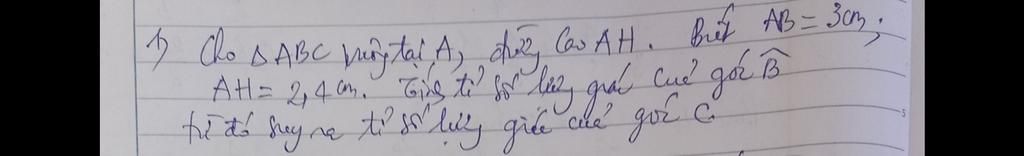 1) Cho △ABC vuông tại A, đường cao AH. Biết AB = 3cm;
AH = 2,4 cm. Tính tỉ số lượng giác của góc B̂
từ đó suy ra tỉ số lượng giác của góc C